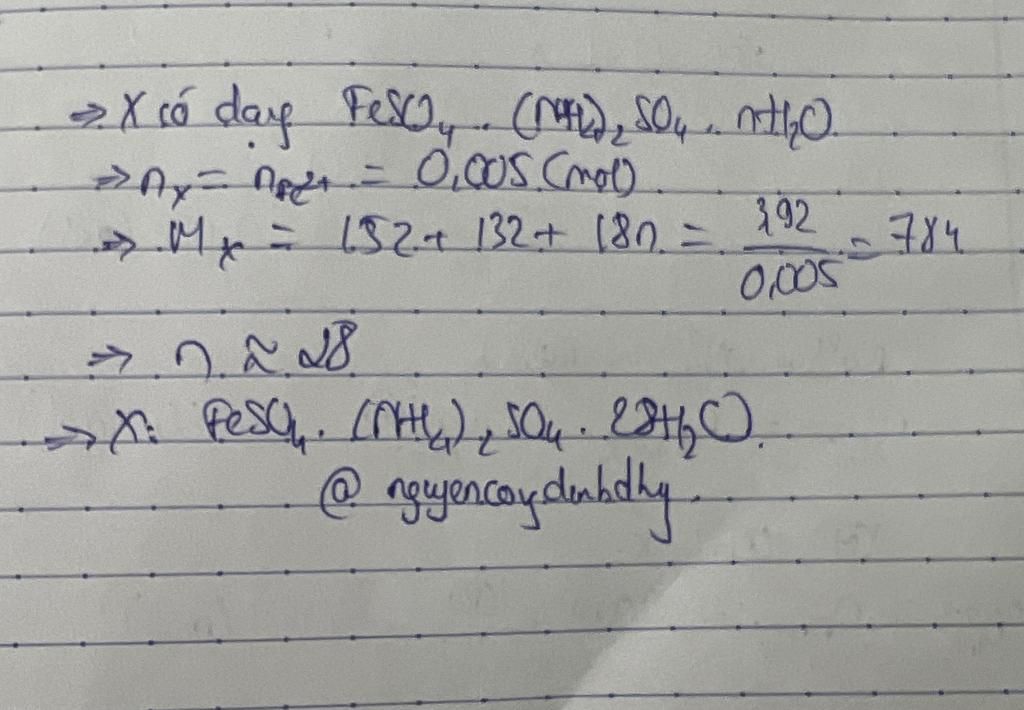 ⇒ X có dạng FeSO₄.(NH₄)₂SO₄.nH₂O
⇒ nₓ = n_Fe²⁺ = 0,005 (mol)
⇒ Mₓ = 152 + 132 + 18n = 3,92/0,005 = 784
⇒ n ≈ 28
⇒ X: FeSO₄.(NH₄)₂SO₄.28H₂O.